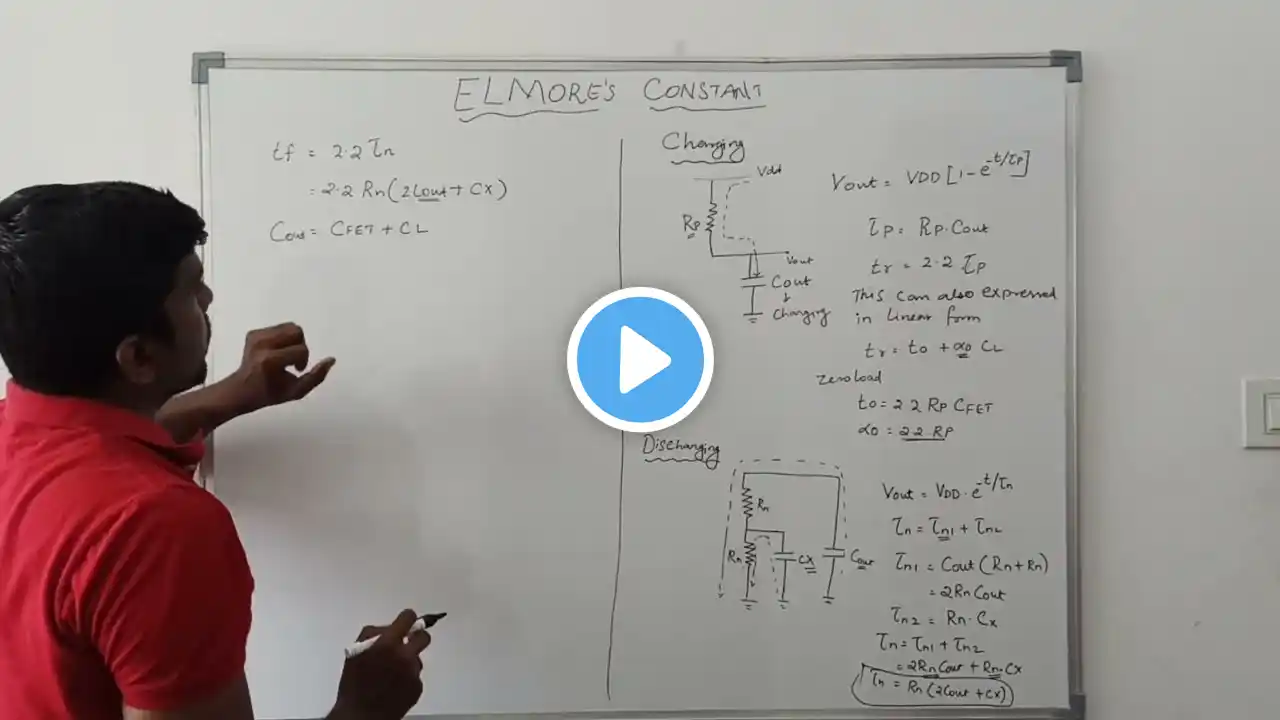 ELMORE'S CONSTANT
tf = 2.2 τn
= 2.2 Rn(2Cout + CX)
Cout = CFET + CL
Charging
Vdd
Rp
Vout
Cout
↓
charging
Vout = VDD[1-e^-t/τp]
τp = Rp.Cout
tr = 2.2 τp
This can also expressed
in Linear form
tr = to + αo CL
zero load
to = 2.2 Rp CFET
αo = 2.2 Rp
Discharging
Rn
Rn
CX
Cout
Vout = VDD.e^-t/τn
τn = τn1 + τn2
τn1 = Cout (Rn+Rn)
= 2Rn Cout
τn2 = Rn.Cx
τn = τn1 + τn2
= 2Rn Cout + Rn.CX
τn = Rn(2Cout + CX)